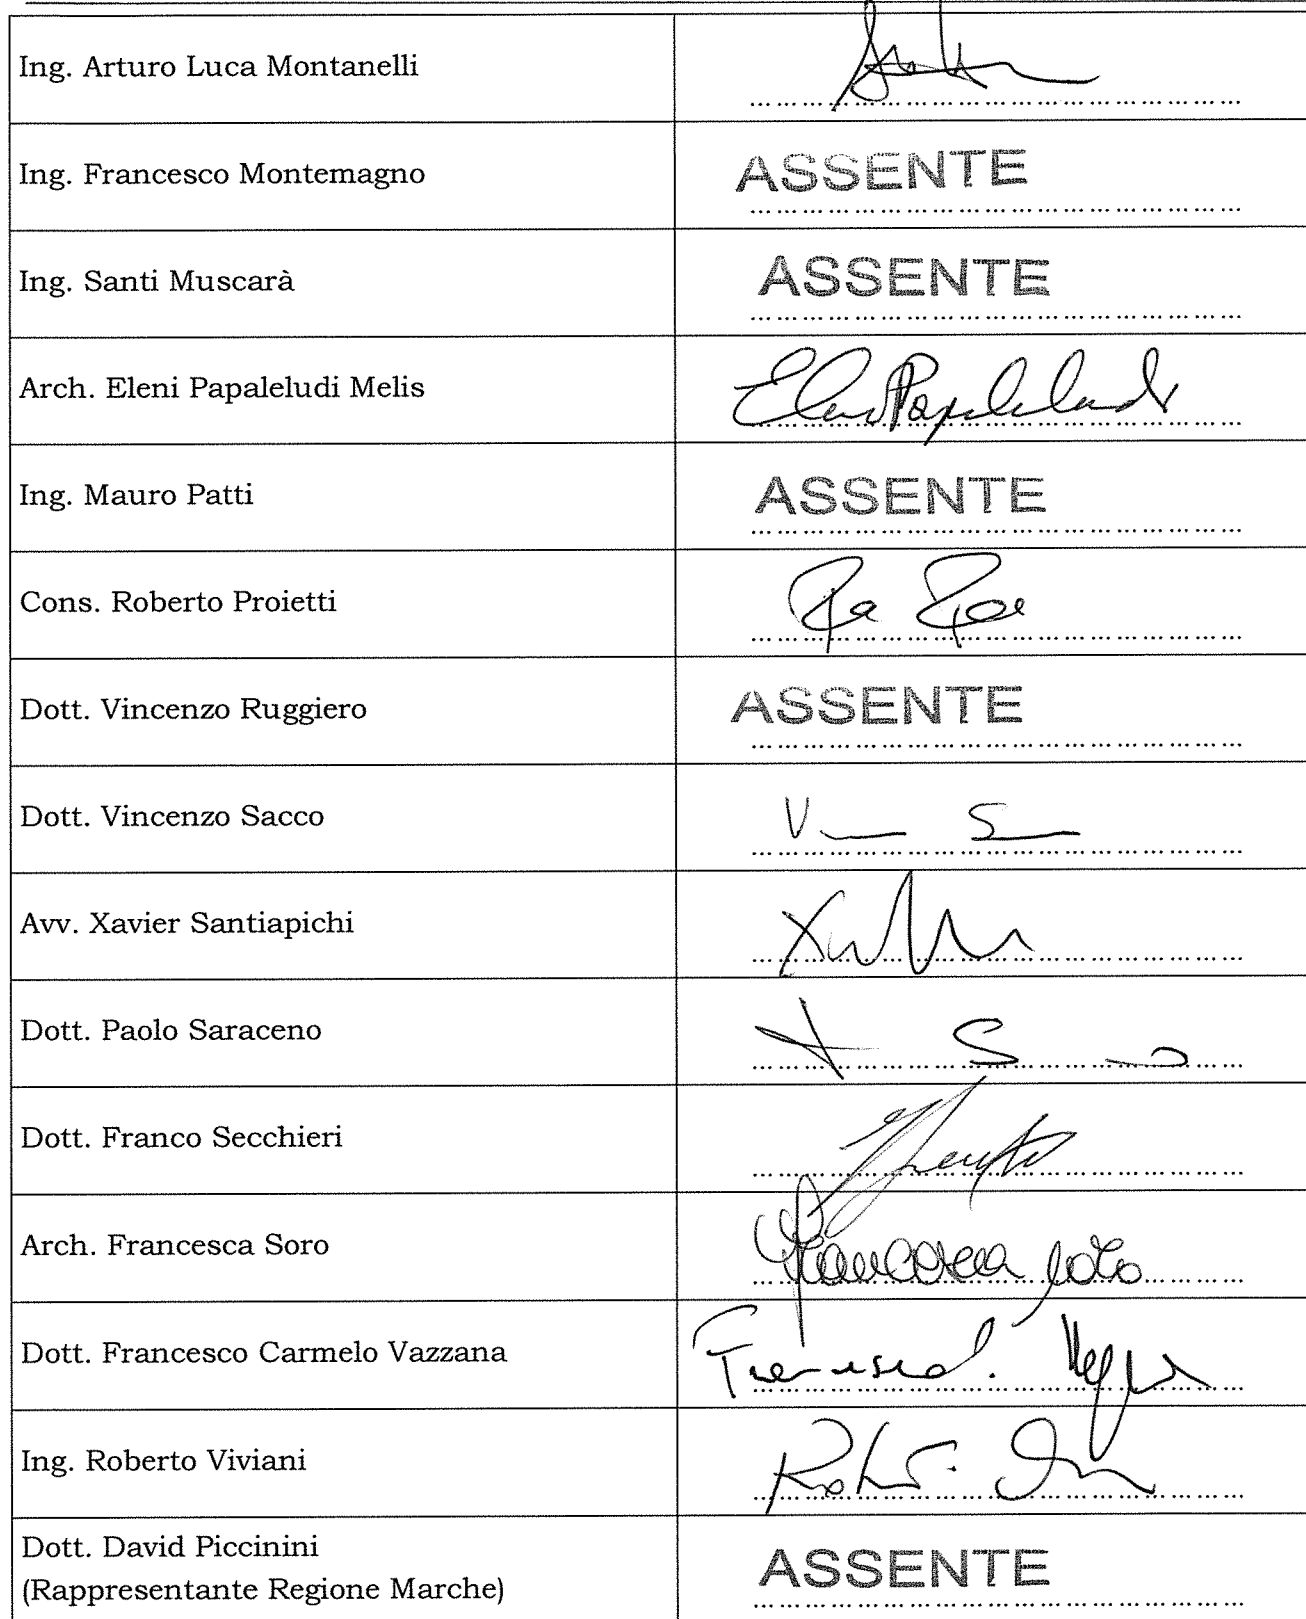 Ing. Arturo Luca Montanelli
Ing. Francesco Montemagno ASSENTE
Ing. Santi Muscarà ASSENTE
Arch. Eleni Papaleludi Melis
Ing. Mauro Patti ASSENTE
Cons. Roberto Proietti
Dott. Vincenzo Ruggiero ASSENTE
Dott. Vincenzo Sacco
Avv. Xavier Santiapichi
Dott. Paolo Saraceno
Dott. Franco Secchieri
Arch. Francesca Soro Francesca Soro
Dott. Francesco Carmelo Vazzana
Ing. Roberto Viviani
Dott. David Piccinini
(Rappresentante Regione Marche) ASSENTE